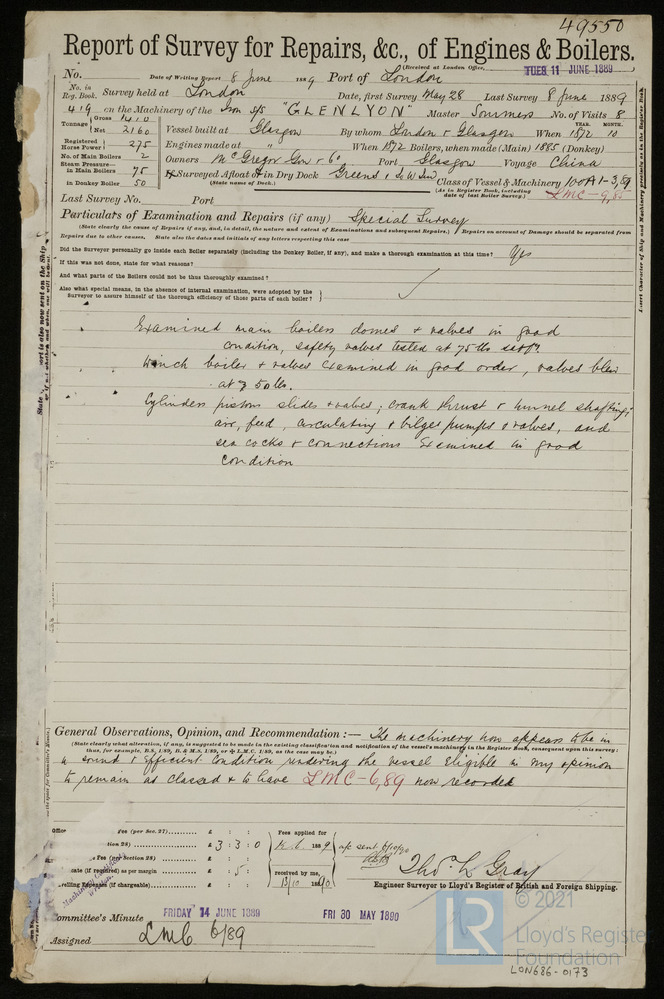 49550
Report of Survey for Repairs, &c., of Engines & Boilers.
(Received at London Office, TUES. 11 JUNE 1889
No. Date of Writing Report 8 June 1889 Port of London
No. in Reg. Book. Survey held at London Date, first Survey May 28 Last Survey 8 June 1889
419 on the Machinery of the Iron S/S "GLENLYON" Master Sommers No. of Visits 8
Tonnage Gross
Net 2160 Vessel built at Glasgow By whom London & Glasgow When 1872 YEAR. MONTH. 10
Registered Horse Power 275 Engines made at " When 1872 Boilers, when made (Main) 1885 (Donkey)
No. of Main Boilers 2 Owners McGregor Gow & Co Port Glasgow Voyage China
Steam Pressure— in Main Boilers 75
in Donkey Boiler 50 Surveyed Afloat or in Dry Dock Greens & S W Ind
(State name of Dock.) Class of Vessel & Machinery 100A1-3,89
(As in Register Book, including date of last Boiler Survey.) LMC-9,85
Last Survey No. Port
Particulars of Examination and Repairs (if any) Special Survey
(State clearly the cause of Repairs if any, and, in detail, the nature and extent of Examinations and subsequent Repairs.) Repairs on account of Damage should be separated from
Repairs due to other causes. State also the dates and initials of any letters respecting this case
Did the Surveyor personally go inside each Boiler separately (including the Donkey Boiler, if any), and make a thorough examination at this time? Yes
If this was not done, state for what reasons?
And what parts of the Boilers could not be thus thoroughly examined?
Also what special means, in the absence of internal examination, were adopted by the
Surveyor to assure himself of the thorough efficiency of those parts of each boiler?
Examined main boilers domes & valves in good
condition, safety valves tested at 75 lbs
Winch boiler & valves examined in good order, valves blew
at 50 lbs.
Cylinders pistons slides & valves; crank thrust & tunnel shafting;
air, feed, circulating & bilge pumps & valves, and
sea cocks & connections Examined in good
condition
General Observations, Opinion, and Recommendation :— The machinery now appears to be in
(State clearly what alteration, if any, is suggested to be made in the existing classification and notification of the vessel's machinery in the Register Book, consequent upon this survey;
thus, for example, B.S. 1/89, B. & M.S. 1/89, or L.M.C. 1/89, as the case may be.)
a sound & efficient condition rendering the vessel eligible in my opinion
to remain as classed & to have LMC-6,89 now recorded
Fee (per Sec. 27) £ : :
£ 3:3:0
Fee (per Section 28) £ : :
(if required) as per margin £ :5:
Travelling Expenses (if chargeable) £ : :
Fees applied for
1889
received by me,
1890
Thos. L Gray
Engineer Surveyor to Lloyd's Register of British and Foreign Shipping.
Committee's Minute FRIDAY 14 JUNE 1889 FRI 30 MAY 1890
Assigned LMC 6/89
Insert Character of Ship and Machinery precisely as in the Register Book.
© 2021
LR
Lloyd's Register
Foundation
LON686-0173